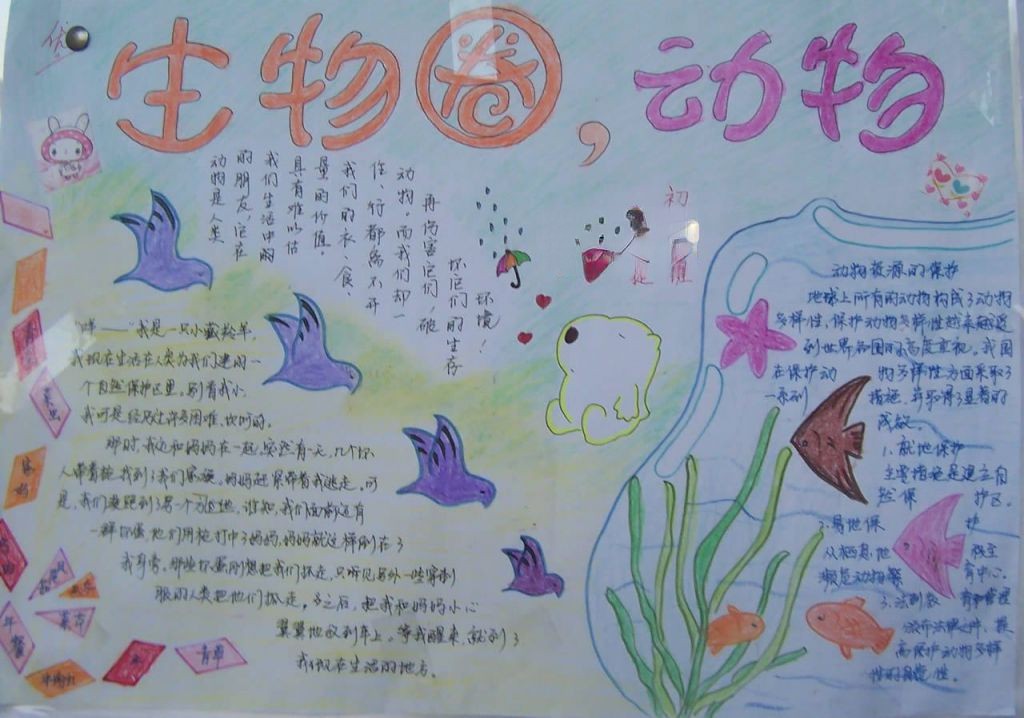 生物圈，动物
动物是人类
的朋友，它在
我们生活中的
具有难以估
量的价值。
我们的衣、食、
住、行都离不开
动物。而我们却一
再伤害它们，破
坏它们的生存
环境！
初
"咩——"我是一只小藏羚羊，
我现在生活在人类为我们建的一
个自然保护区里，别看我小，
我可是经历过许多困难、坎坷的。
那时，我还和妈妈在一起，突然有一天，几个坏
人带着枪，找到了我们家族，妈妈赶紧带着我逃走，可
是，我们虽跑到了另一个
一群坏蛋，他们用枪打中了妈妈，妈妈就这样倒在了
我身旁。那些坏蛋刚想把我们抓走，只听见另外一些穿制
服的人类把他们抓走，多之后，把我和妈妈小心
翼翼地放到车上。等我醒来，就到了
我们现在生活的地方。
动物资源的保护
地球上所有的动物构成了动物
多样性，保护动物多样性越来越受
到世界各国的高度重视。我国
在保护动 物多样性方面采取了
一系列 措施，并取得了显着的
成效。
1、就地保护
主要措施是建立自
然保 护区。
2、易地保 护
从栖息地 移至
濒危动物繁 育中心。
3、法制教 育和管理
颁布法律文件，提
高保护动物多样
性的自觉性。
青草